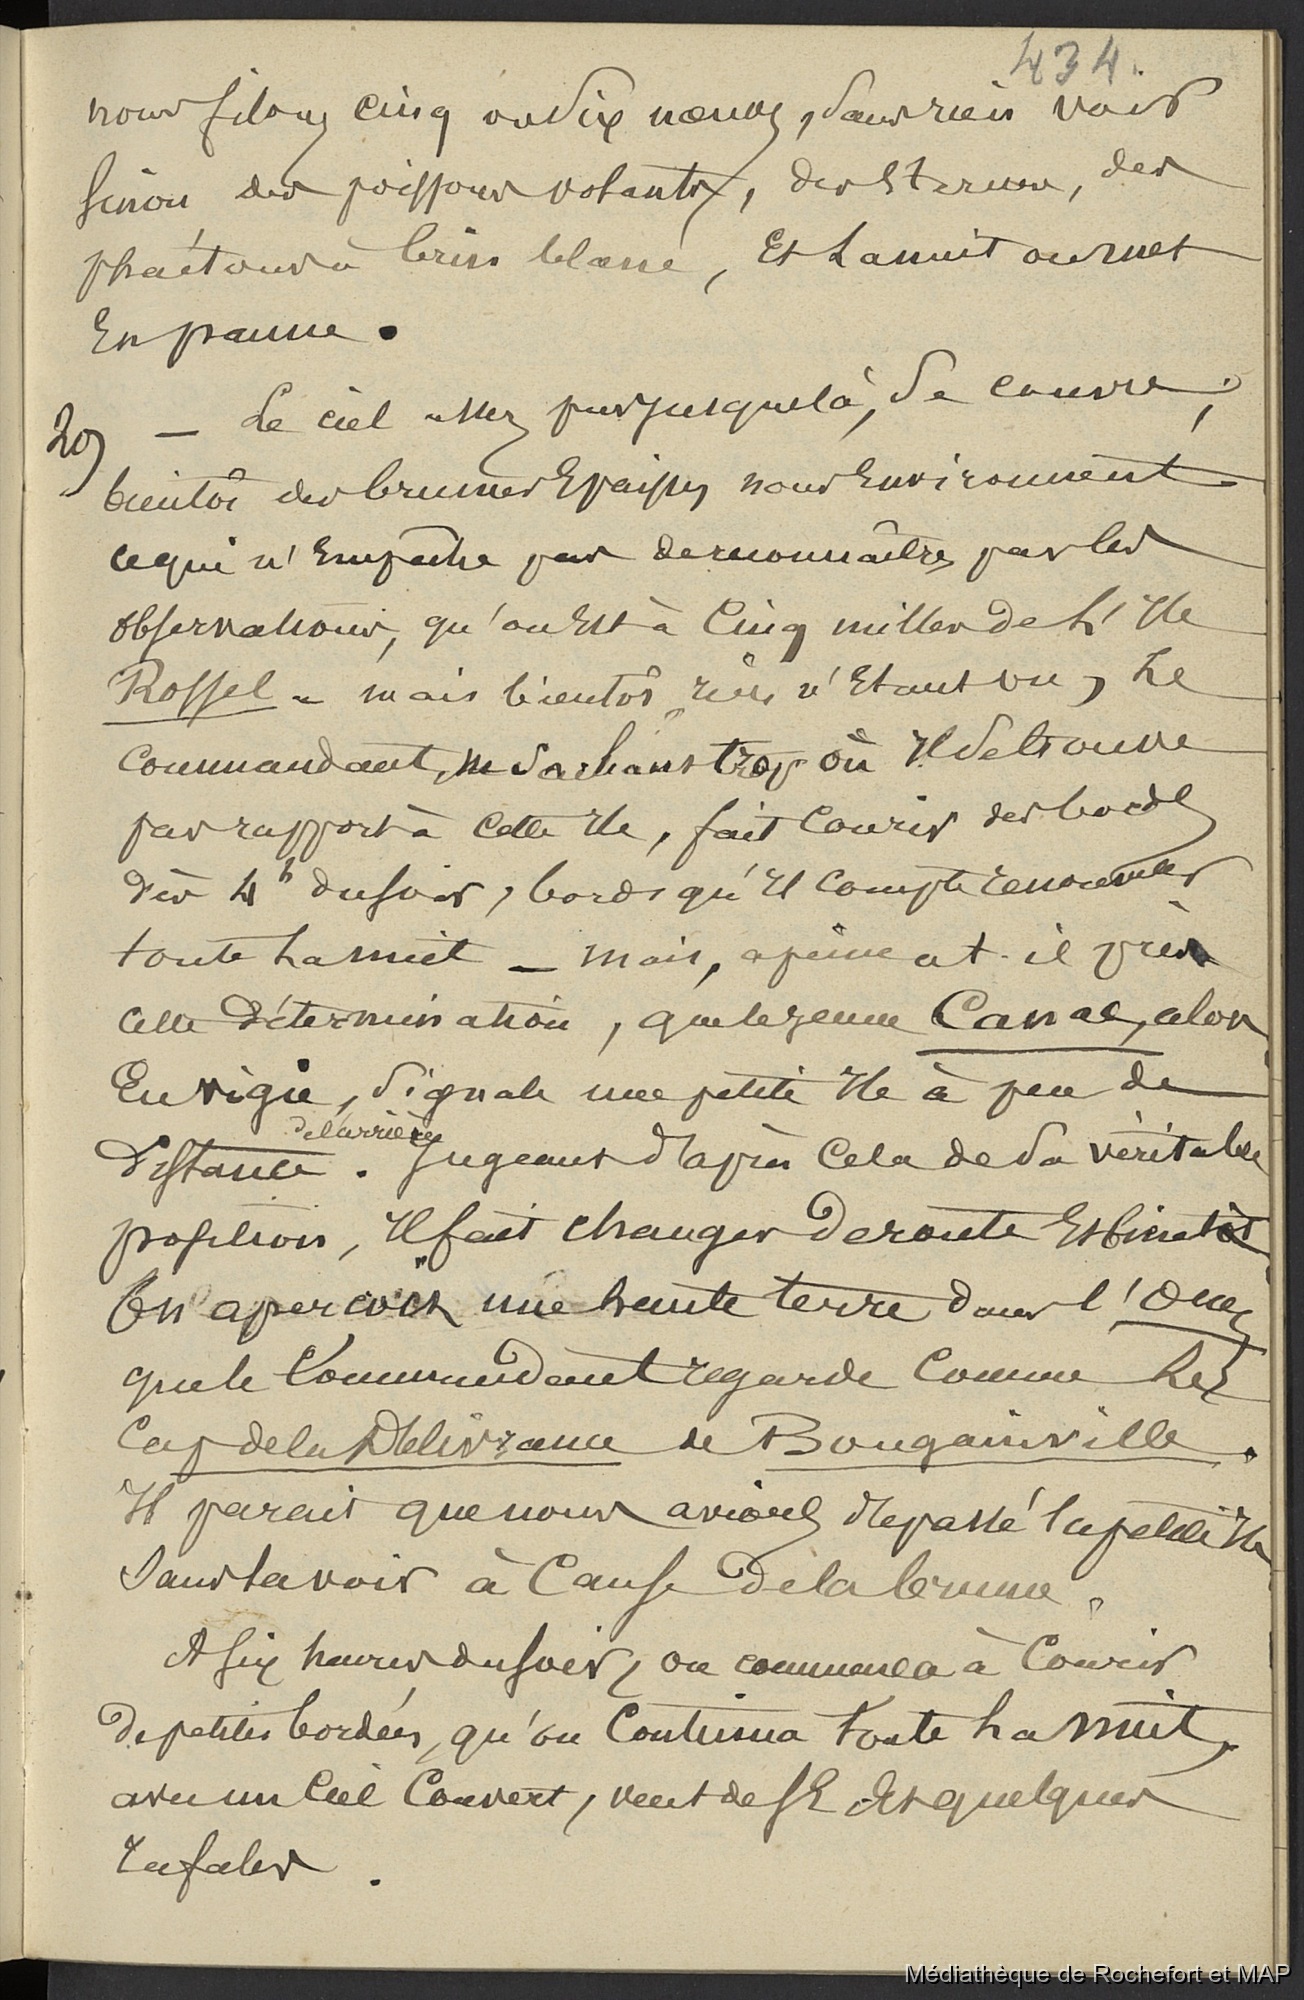 434.
nous filons cinq ou six nœuds, sans rien voir
sinon des poissons volants, des sternes, des
phaétons à brins blancs, et la nuit on met
en panne.
20, — Le ciel assez pur jusque là, se couvre;
bientôt des brumes épaisses nous environnent
ce qui n'empêche pas de reconnaître, par les
observations, qu'on est à cinq milles de l'Ile
Rossel - mais bientôt, rien n'étant vu, le
commandant, ne sachant trop où il se trouve
par rapport à cette Ile, fait courir des bords
dès 4h du soir, bords qu'il compte renouveler
toute la nuit — mais, à peine a t-il pris
cette détermination, que le jeune Canac, alors
en vigie, signale une petite Ile à peu de
de l'arrière
distance. Jugeant d'après cela de sa véritable
position, il fait changer de route et bientôt
on aperçoit une haute terre dans l'Ouest
que le commandant regarde comme le
Cap de la Délivrance de Bougainville.
Il parait que nous avions dépassé la petite Ile
sans la voir à cause de la brume.
A six heures du soir, on commença à courir
de petites bordées, qu'on continua toute la nuit,
avec un ciel couvert, vent de SE et quelques
rafales.
Médiathèque de Rochefort et MAP